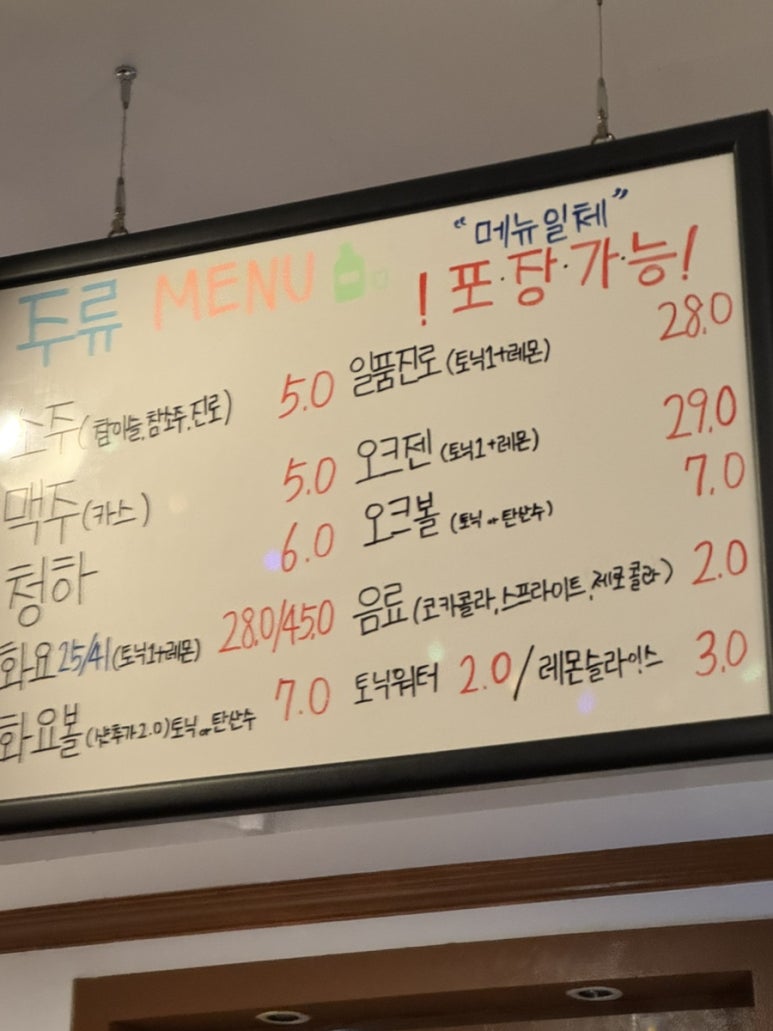 주류 MENU
"메뉴일체"
!포·장·가·능!
소주(참이슬,참소주,진로) 5.0
맥주(카스) 5.0
청하 6.0
화요25/41(토닉1+레몬) 28.0/45.0
화요볼(샷추가2.0)토닉or탄산수 7.0
일품진로(토닉1+레몬) 28.0
오크젠(토닉1+레몬) 29.0
오크볼(토닉or탄산수) 7.0
음료(코카콜라,스프라이트,제로콜라) 2.0
토닉워터 2.0/레몬슬라이스 3.0